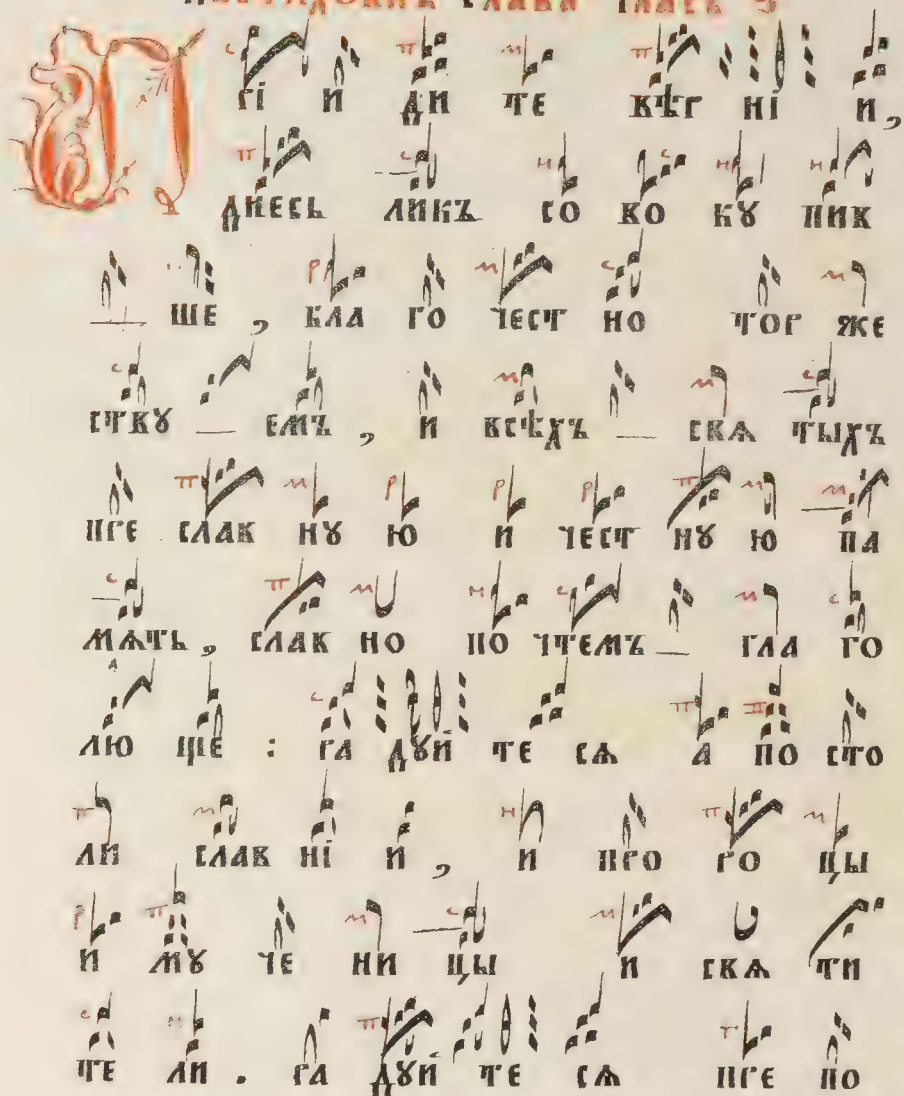 слава гласъ
Прі и ди те вѣр ні и,
днесь ликъ со во ку пив
— ше, бла го чест но тор же
ству — емъ, и всѣхъ — свѧ тыхъ
пре слав нꙋ ю и чест нꙋ ю па
мѧть, слав но по чтемъ — гла го
лю ще : ра дꙋй те сѧ а по сто
ли слав ні и, и про ро цы
и мꙋ че ни цы и свѧ ти
те ли. ра дꙋй те сѧ пре по